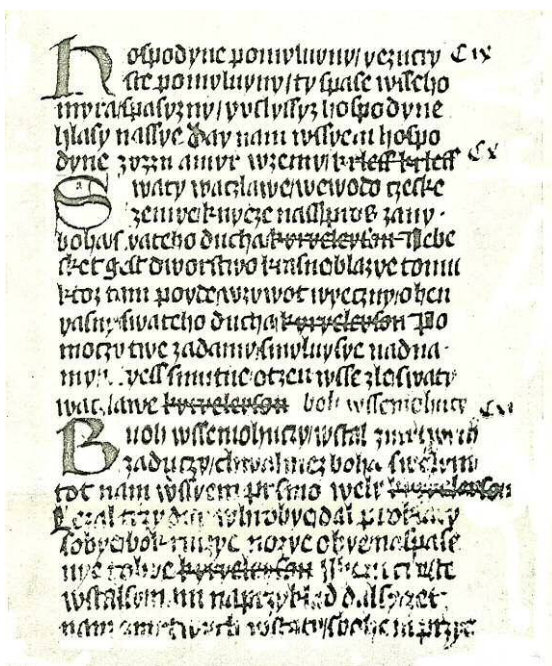 Hospodyne pomyluyny / yezucry C ix
ste pomyluyny / ty spase wsseho
myra / spasyzny / yvslyssyz hospodyne
hlasy nassye day nam wssyem hospo
dyne zyzzn amyr wzemy / krless krless C x
Swaty waczlawe / wewodo czeske
zemye knyeze nass / pros zany
boha / swateho ducha kyryeleyson Nebe
ske gest dworstwo krasne blazye tomu
ktoz tam poyde wzywot wyeczny / ohen
yasny / swateho ducha kyryeleyson Po
moczy twe zadamy / smyluysye nadna
my utyess smutne otzen wsse zle / swaty
waczlawe kyryeleyson boh wssemohucy C xi
Buoh wssemohuczy / wstal zmrtwych
zaduczy / chwalmez boha swesselym
tot nam wssyem pysmo wely kyryeleyson
Lezal trzy dny whrobye dal proklaty
sobye bok rucye nozye obye naspase
nye tobye kyryeleyson
wstal naprzyklad dal syzet
nam